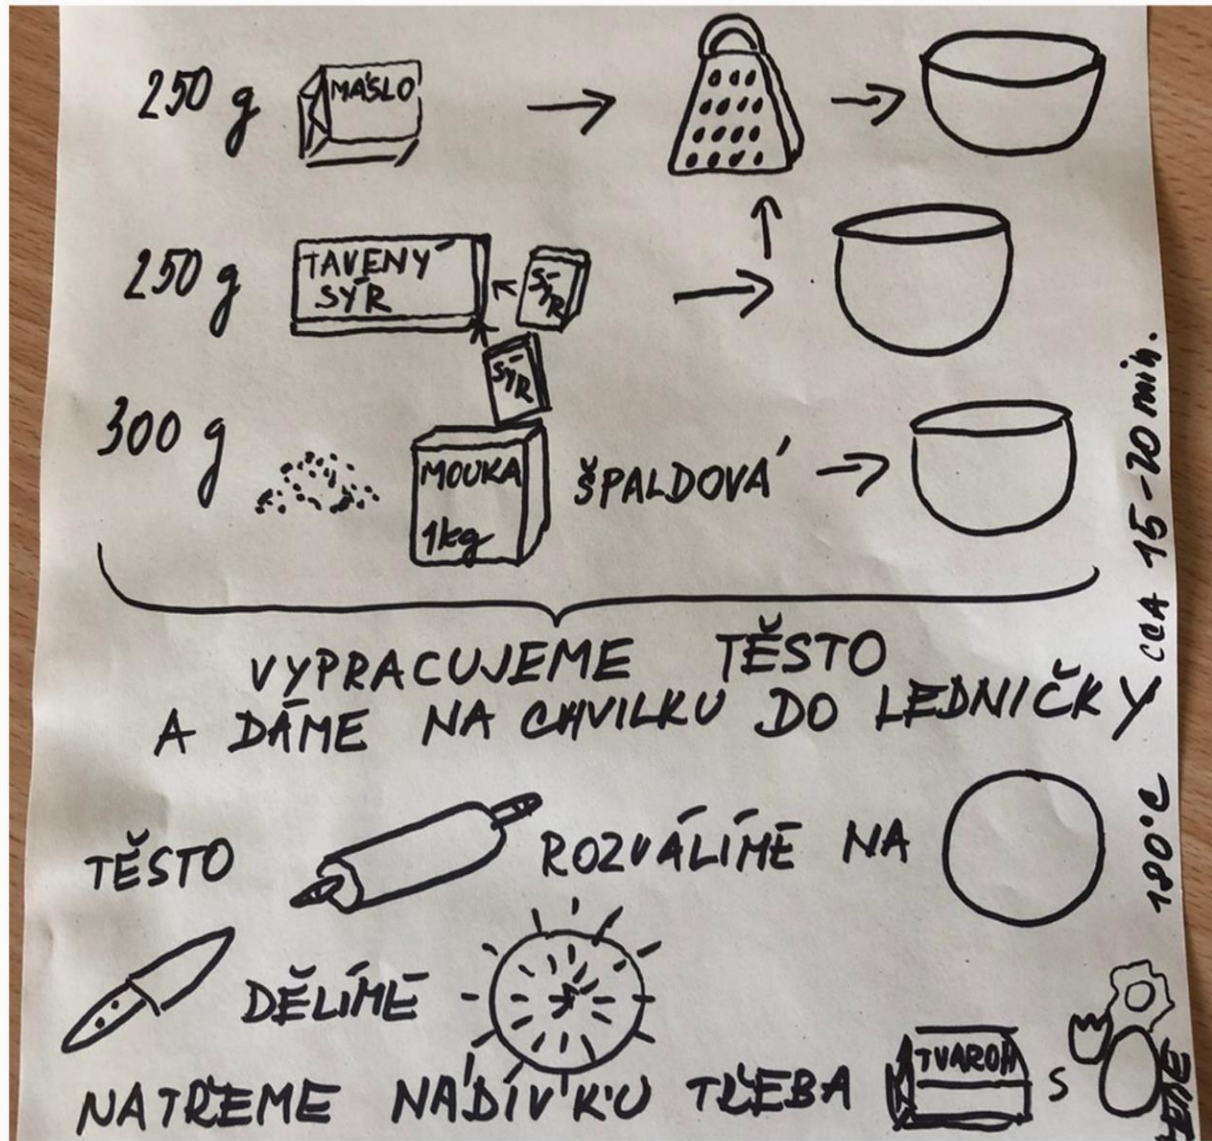 250 g MÁSLO
250 g TAVENÝ SÝR SÝR
SÝR
300 g MOUKA 1kg ŠPALDOVÁ
VYPRACUJEME TĚSTO
A DÁME NA CHVILKU DO LEDNIČKY
TĚSTO ROZVÁLÍME NA
DĚLÍME
NATŘEME NÁDIVKU TŘEBA TVAROH S
180°C CCA 15-20 min.